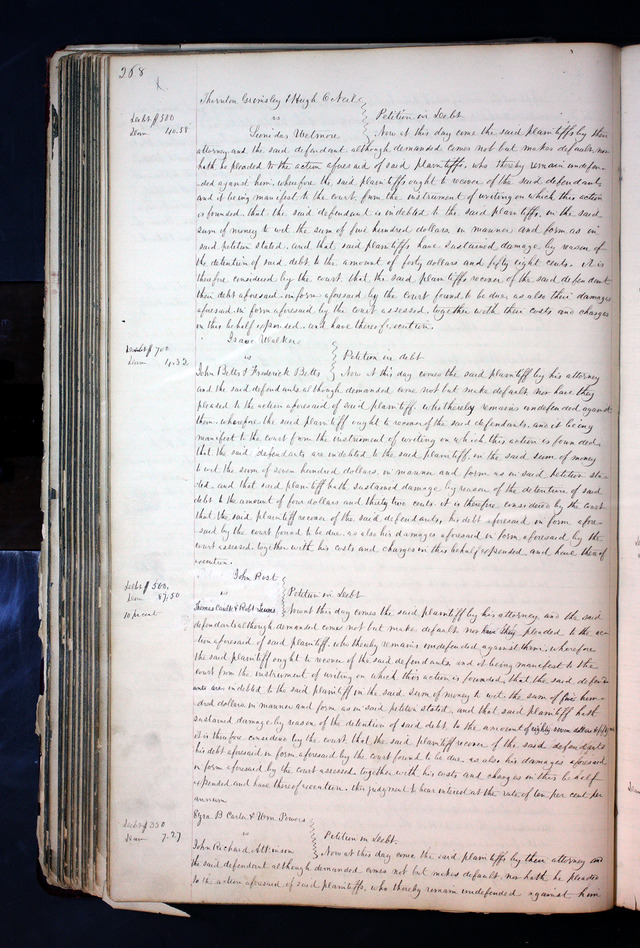 268
Thornton Grimsley & Hugh O Neil
vs Petition in Debt
Debt $500
Dam 40.58
Leonidas Wetmore Now at this day come the said plaintiffs by their
attorney and the said defendant although demanded comes not but makes default, nor
hath he pleaded to the action aforesaid of said plaintiffs, who thereby remain undefen-
-ded against him. wherefore the said plaintiffs ought to recover of the said defendant,
and it being manifest to the court, from the instrument of writing on which this action
is founded. that the said defendant is indebted to the said plaintiffs, in the said
sum of money to wit the sum of five hundred dollars in manner and form as in
said petition stated. and that said plaintiffs have sustained damage by reason of
the detention of said debt to the amount of forty dollars and fifty eight cents. It is
therefore considered by the court that the said plaintiffs recover of the said defendant
their debt aforesaid. in form aforesaid by the court found to be due, as also their damages
aforesaid in form aforesaid by the court assessed, together with their costs and charges
in this behalf expended. and have thereof execution.
Isaac Walker
vs Petition in debt
Debt $700
Dam 4.32
John Betts & Frederick Betts Now at this day comes the said plaintiff by his attorney
and the said defendants although demanded come not but make default nor have they
pleaded to the action aforesaid of said plaintiff. who thereby remains undefended against
them. wherefore the said plaintiff ought to recover of the said defendants, and it being
manifest to the court from the instrument of writing on which this action is founded,
that the said defendants are indebted to the said plaintiff, in the said sum of money
to wit the sum of seven hundred dollars, in manner and form as in said petition sta-
-ted. and that said plaintiff hath sustained damage by reason of the detention of said
debt to the amount of four dollars and thirty two cents. it is therefore considered by the court
that the said plaintiff recover of the said defendants, his debt aforesaid in form afore-
-said by the court found to be due, as also his damages aforesaid in form aforesaid, by the
court assessed, together with his costs and charges in this behalf expended. and have thereof
execution.
John Post
vs Petition in Debt
Debt $500.
Dam 87.50
10 pr cent
& Robt Now at this day comes the said plaintiff by his attorney and the said
defendants although demanded comes not but make default nor have they pleaded to the ac-
tion aforesaid of said plaintiff. who thereby remains undefended against them, wherefore
the said plaintiff ought to recover of the said defendants and it being manifest to the
court from the instrument of writing on which this action is founded, that the said defend-
ants are indebted to the said plaintiff in the said sum of money to wit the sum of five hun-
dred dollars in manner and form as in said petition stated, and that said plaintiff hath
sustained damage by reason of the detention of said debt to the amount of eighty seven dollars & fifty cts
it is therefore considered by the court that the said plaintiff recover of the said defendants
his debt aforesaid in form aforesaid by the court found to be due, as also his damages aforesaid
in form aforesaid by the court assessed, together with his costs and charges in this behalf
expended and have thereof execution. this judgment to bear interest at the rate of ten per cent per
annum
Ezra B Carter & Wm Powers
vs Petition in Debt.
Debt $350
Dam 7.27
John Richard Atkinson Now at this day come the said plaintiffs by their attorney and
the said defendant although demanded comes not but makes default, nor hath he pleaded
to the action aforesaid of said plaintiffs, who thereby remain undefended against him